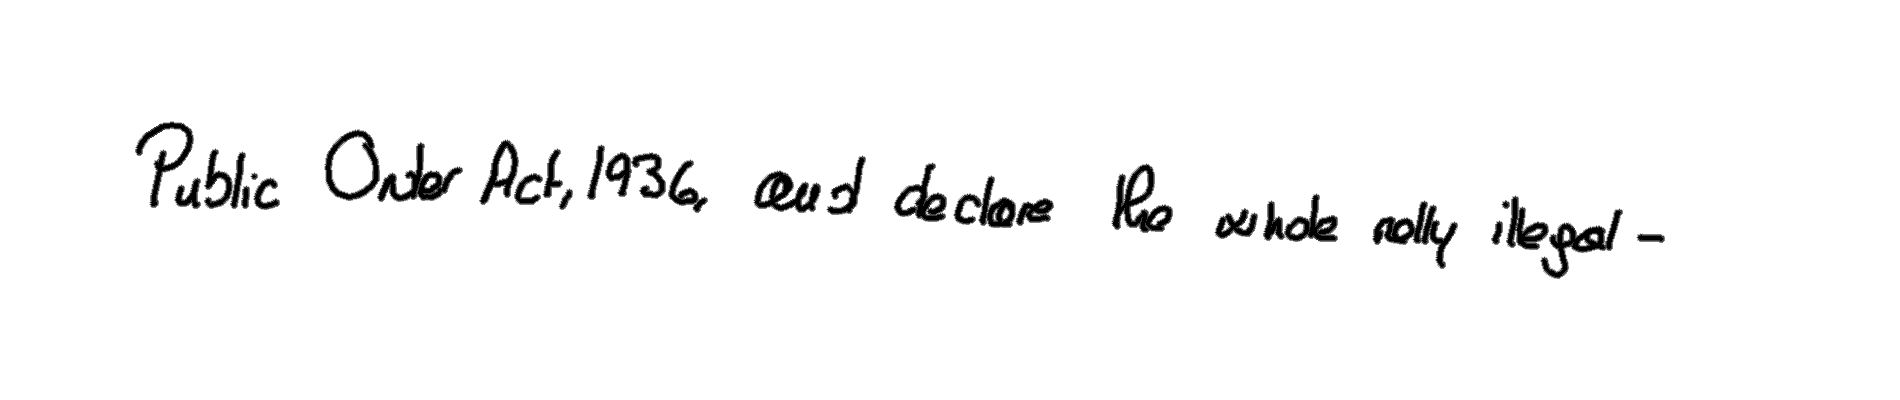 Public Order Act, 1936, and declare the whole rally illegal -